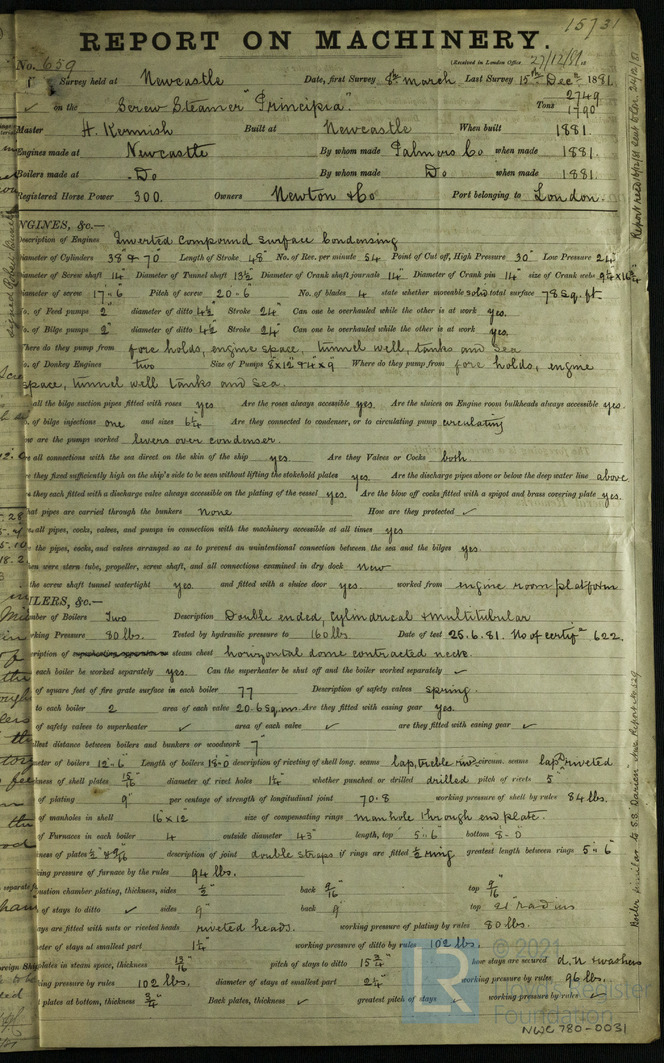 15731
REPORT ON MACHINERY.
No. 659 (Received in London Office 27/12/81 18
Survey held at Newcastle Date, first Survey 8th March Last Survey 15th Decr 1881
on the Screw Steamer "Principia". Tons 2749 1790
Master H. Kennish Built at Newcastle When built 1881.
Engines made at Newcastle By whom made Palmers Co when made 1881.
Boilers made at Do By whom made Do when made 1881
Registered Horse Power 300. Owners Newton & Co Port belonging to London.
NGINES, &c.—
Description of Engines Inverted Compound Surface Condensing
iameter of Cylinders 38" & 70" Length of Stroke 48" No. of Rev. per minute 54 Point of Cut off, High Pressure 30" Low Pressure 24"
iameter of Screw shaft 14" Diameter of Tunnel shaft 13½" Diameter of Crank shaft journals 14" Diameter of Crank pin 14" size of Crank webs
iameter of screw 17-6" Pitch of screw 20-6" No. of blades 4 state whether moveable solid total surface 78 sq. ft
o. of Feed pumps 2 diameter of ditto 4½" Stroke 24" Can one be overhauled while the other is at work yes.
o. of Bilge pumps 2 diameter of ditto 4½" Stroke 24" Can one be overhauled while the other is at work yes.
here do they pump from fore holds, engine space, tunnel well, tanks and sea
o. of Donkey Engines two Size of Pumps 8x12" & 4x9 Where do they pump from fore holds, engine
space, tunnel well tanks and sea.
all the bilge suction pipes fitted with roses yes Are the roses always accessible yes. Are the sluices on Engine room bulkheads always accessible yes.
of bilge injections one and sizes 6¼" Are they connected to condenser, or to circulating pump circulating
ow are the pumps worked levers over condenser.
e all connections with the sea direct on the skin of the ship yes Are they Valves or Cocks both
e they fixed sufficiently high on the ship's side to be seen without lifting the stokehold plates yes. Are the discharge pipes above or below the deep water line above
e they each fitted with a discharge valve always accessible on the plating of the vessel yes. Are the blow off cocks fitted with a spigot and brass covering plate yes.
hat pipes are carried through the bunkers None How are they protected ✓
e all pipes, cocks, valves, and pumps in connection with the machinery accessible at all times yes
e the pipes, cocks, and valves arranged so as to prevent an unintentional connection between the sea and the bilges yes.
hen were stern tube, propeller, screw shaft, and all connections examined in dry dock New
the screw shaft tunnel watertight yes. and fitted with a sluice door yes. worked from engine room platform
ILERS, &c.—
mber of Boilers Two Description Double ended, Cylindrical & multitubular
rking Pressure 80 lbs. Tested by hydraulic pressure to 160 lbs. Date of test 25.6.81. No of certifte 622.
ription of superheating apparatus steam chest horizontal dome contracted neck.
each boiler be worked separately yes. Can the superheater be shut off and the boiler worked separately ✓
of square feet of fire grate surface in each boiler 77 Description of safety valves spring.
to each boiler 2 area of each valve 20.6 sq. in. Are they fitted with easing gear yes.
of safety valves to superheater ✓ area of each valve ✓ are they fitted with easing gear ✓
allest distance between boilers and bunkers or woodwork 7"
eter of boilers 12-6" Length of boilers 18-0 description of riveting of shell long. seams lap, treble rivd circum. seams lap, riveted
kness of shell plates 15/16" diameter of rivet holes 1¼" whether punched or drilled drilled pitch of rivets 5"
of plating 9" per centage of strength of longitudinal joint 70.8 working pressure of shell by rules 84 lbs.
of manholes in shell 16"x12" size of compensating rings manhole through end plate.
of Furnaces in each boiler 4 outside diameter 43" length, top 5-6" bottom 8-0"
ness of plates ½" & 9/16" description of joint double straps if rings are fitted ½ ring greatest length between rings 5-6"
ing pressure of furnace by the rules 94 lbs.
ustion chamber plating, thickness, sides ½" back 9/16" top 9/16"
of stays to ditto ✓ sides 9" back 9" top
ays are fitted with nuts or riveted heads riveted heads. working pressure of plating by rules 80 lbs.
eter of stays at smallest part 1¼" working pressure of ditto by rules 102 lbs.
plates in steam space, thickness 13/16" pitch of stays to ditto 15¾" how stays are secured d.n & washers
ing pressure by rules 102 lbs. diameter of stays at smallest part 2¼" working pressure by rules 96 lbs.
t plates at bottom, thickness ¾" Back plates, thickness ✓ greatest pitch of stays ✓ working pressure by rules ✓
© 2021
Lloyd's Register
Foundation
NWC 780-0031